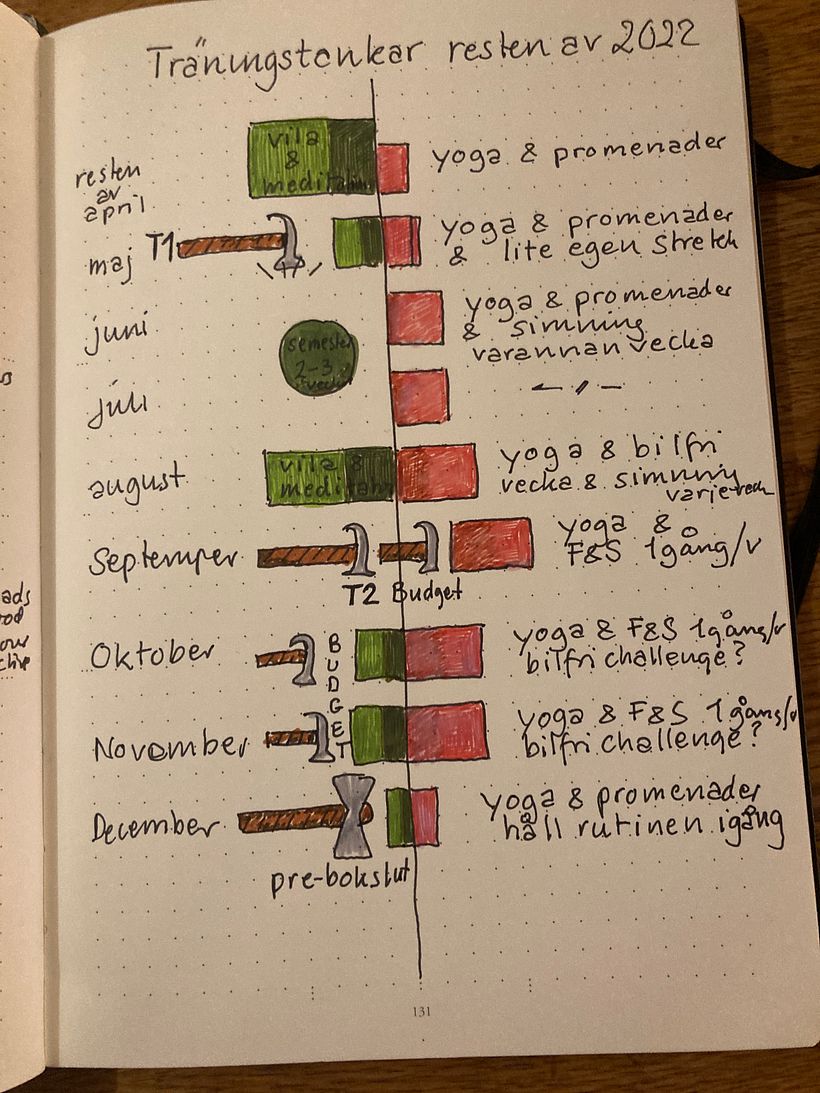 Träningstankar resten av 2022
resten
av
april
vila
&
meditation
yoga & promenader
maj T1
yoga & promenader
& lite egen stretch
juni
yoga & promenader
& simning
varannan vecka
semester
2-3
juli
— 〃 —
august
vila &
meditation
yoga & bilfri
vecka & simning
varje vecka
Septemper
T2 Budget
yoga &
F&S 1gång/v
Oktober
BUDGET
yoga & F&S 1gång/v
bilfri challenge?
November
yoga & F&S 1gång/v
bilfri challenge?
December
pre-bokslut
yoga & promenader
håll rutinen igång
131
ads
our